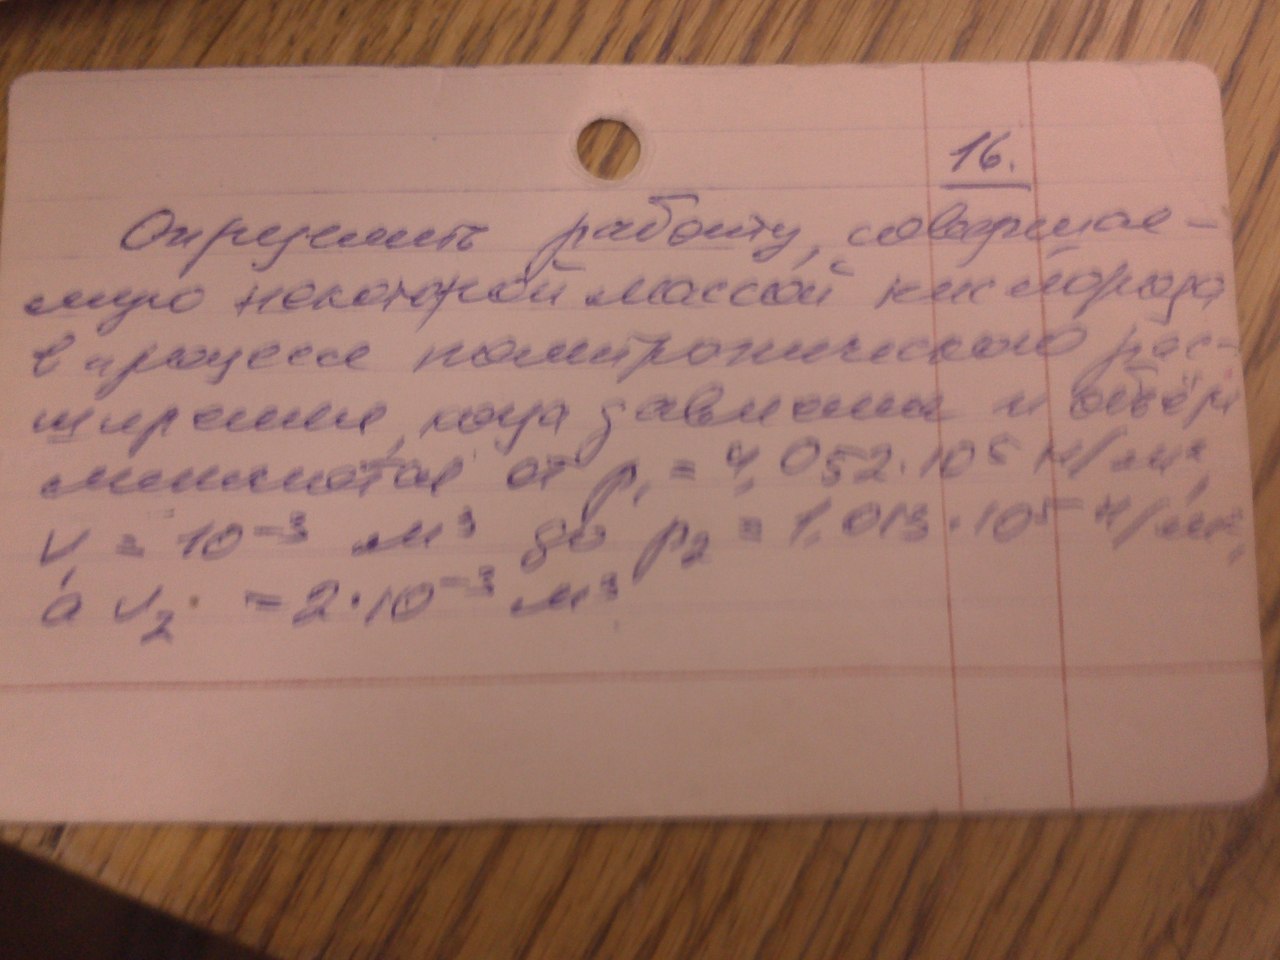 16.
Определить работу, совершае-
мую некоторой массой кислорода
в процессе политропического рас-
ширения, когда давление и объём
меняются от p₁ = 4,052·10⁵ Н/м²,
V₁ = 10⁻³ м³ до p₂ = 1,013·10⁵ Н/м²,
а V₂ = 2·10⁻³ м³